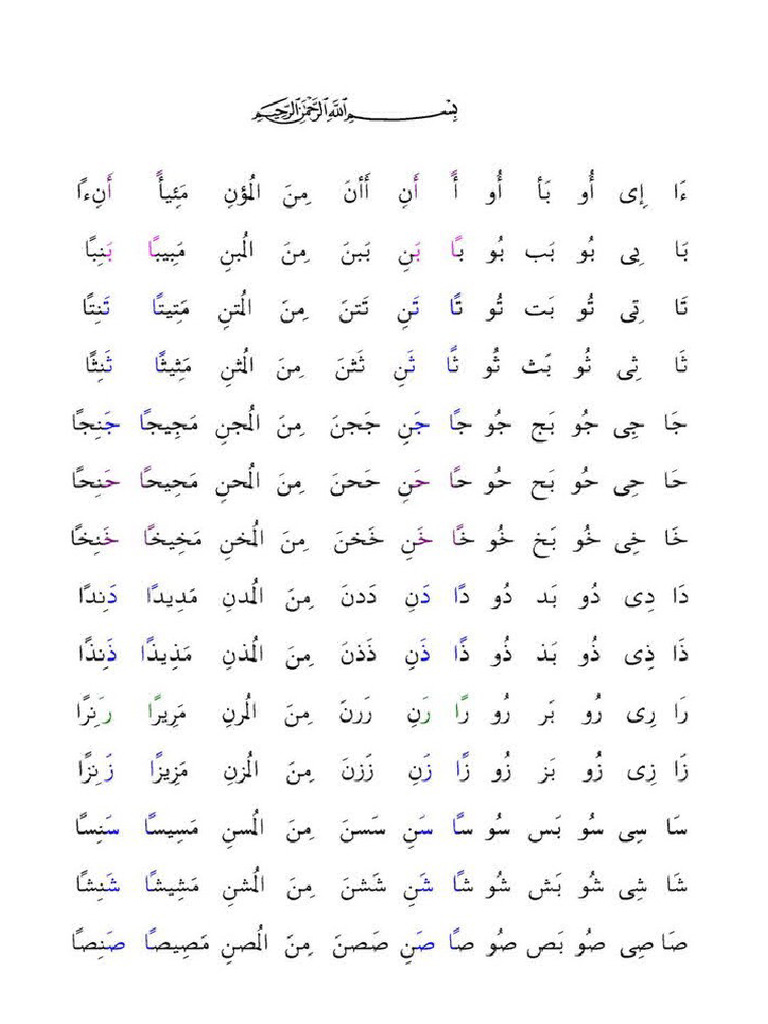 بِسْمِ اللَّهِ الرَّحْمَٰنِ الرَّحِيمِ
ءَا إِى أُو بَأ أُو أً أَنِ أَأنَ مِنَ الُمؤنِ مَئِيأً أَنِءًا
بَا بِى بُو بَب بُو بًا بَنِ بَبنَ مِنَ الُمبنِ مَبِيبًا بَنِبًا
تَا تِى تُو بَت تُو تًا تَنِ تَتنَ مِنَ الُمتنِ مَتِيتًا تَنِتًا
ثَا ثِى ثُو بَث ثُو ثًا ثَنِ ثَثنَ مِنَ الُمثنِ مَثِيثًا ثَنِثًا
جَا جِى جُو بَج جُو جًا جَنِ جَجنَ مِنَ الُمجنِ مَجِيجًا جَنِجًا
حَا حِى حُو بَح حُو حًا حَنِ حَحنَ مِنَ الُمحنِ مَحِيحًا حَنِحًا
خَا خِى خُو بَخ خُو خًا خَنِ خَخنَ مِنَ الُمخنِ مَخِيخًا خَنِخًا
دَا دِى دُو بَد دُو دًا دَنِ دَدنَ مِنَ الُمدنِ مَدِيدًا دَنِدًا
ذَا ذِى ذُو بَذ ذُو ذًا ذَنِ ذَذنَ مِنَ الُمذنِ مَذِيذًا ذَنِذًا
رَا رِى رُو بَر رُو رًا رَنِ رَرنَ مِنَ الُمرنِ مَرِيرًا رَنِرًا
زَا زِى زُو بَز زُو زًا زَنِ زَزنَ مِنَ الُمزنِ مَزِيزًا زَنِزًا
سَا سِى سُو بَس سُو سًا سَنِ سَسنَ مِنَ الُمسنِ مَسِيسًا سَنِسًا
شَا شِى شُو بَش شُو شًا شَنِ شَشنَ مِنَ الُمشنِ مَشِيشًا شَنِشًا
صَا صِى صُو بَص صُو صًا صَنِ صَصنَ مِنَ الُمصنِ مَصِيصًا صَنِصًا